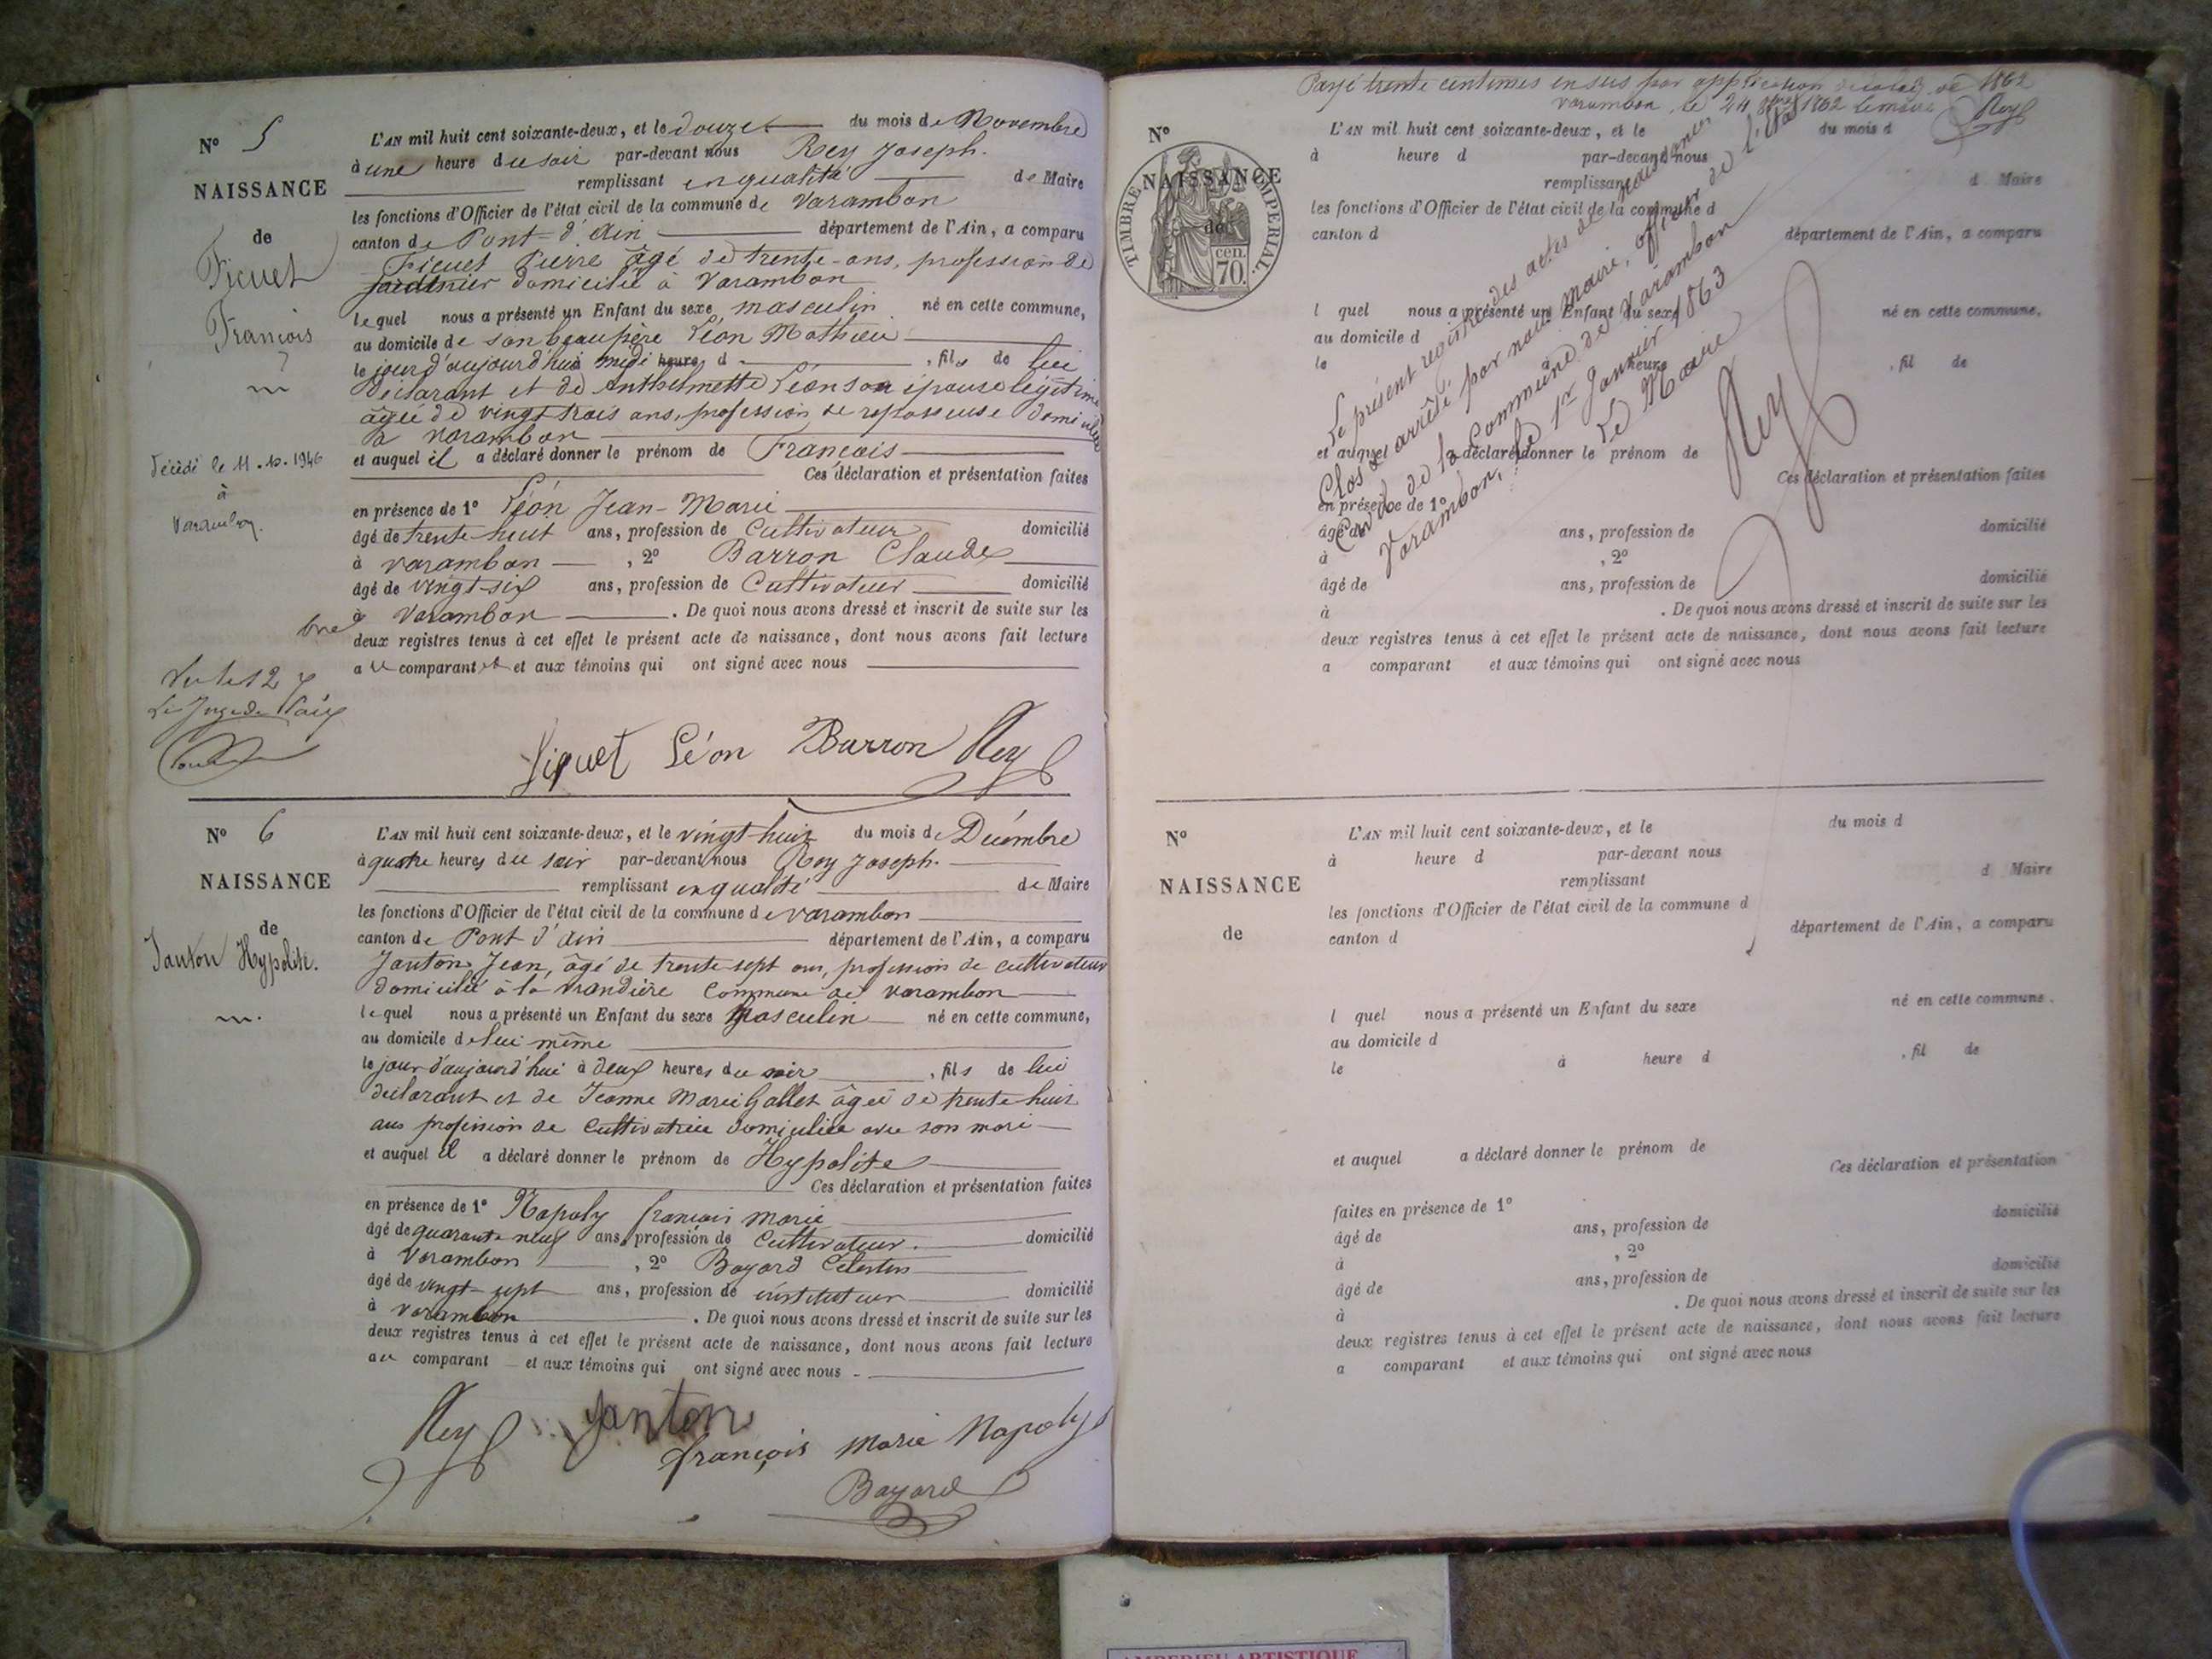 N° 5
NAISSANCE
de
Fiquet
François
Décédé le 11.10.1946
à
Varambon.
Vu le 12
Le Juge de Paix
L'AN mil huit cent soixante-deux, et le douze du mois de Novembre
à une heure du soir par-devant nous Rey Joseph.
remplissant en qualité de Maire
les fonctions d'Officier de l'état civil de la commune de Varambon
canton de Pont-d'Ain département de l'Ain, a comparu
Fiquet Pierre âgé de trente-ans, profession de
jardinier domicilié à Varambon
lequel nous a présenté un Enfant du sexe masculin né en cette commune,
au domicile de son beau père Léon Mathieu
le jour d'aujourd'hui à midi heures d , fils de lui
déclarant et de Anthelmette Léon son épouse légitime
âgée de vingt-trois ans, profession de repasseuse domiciliée
à Varambon
et auquel il a déclaré donner le prénom de François
Ces déclaration et présentation faites
en présence de 1° Léon Jean-Marie
âgé de trente-huit ans, profession de Cultivateur domicilié
à Varambon , 2° Barron Claude
âgé de vingt-six ans, profession de Cultivateur domicilié
à Varambon . De quoi nous avons dressé et inscrit de suite sur les
deux registres tenus à cet effet le présent acte de naissance, dont nous avons fait lecture
au comparant et aux témoins qui ont signé avec nous
Fiquet Léon Barron Rey
N° 6
NAISSANCE
de
Janton Hypolite.
L'AN mil huit cent soixante-deux, et le vingt-huit du mois de Décembre
à quatre heures du soir par-devant nous Rey Joseph.
remplissant en qualité de Maire
les fonctions d'Officier de l'état civil de la commune de Varambon
canton de Pont d'Ain département de l'Ain, a comparu
Janton Jean, âgé de trente-sept ans, profession de cultivateur
domicilié à la commune de Varambon
lequel nous a présenté un Enfant du sexe Masculin né en cette commune,
au domicile de lui même
le jour d'aujourd'hui à deux heures du soir , fils de lui
déclarant et de Jeanne Marie Gallet âgée de trente huit
ans profession de cultivatrice domiciliée avec son mari
et auquel il a déclaré donner le prénom de Hypolite
Ces déclaration et présentation faites
en présence de 1° Napoly françois marie
âgé de quarante neuf ans, profession de Cultivateur. domicilié
à Varambon , 2° Bayard Célestin
âgé de vingt-sept ans, profession de instituteur domicilié
à Varambon . De quoi nous avons dressé et inscrit de suite sur les
deux registres tenus à cet effet le présent acte de naissance, dont nous avons fait lecture
au comparant et aux témoins qui ont signé avec nous
Rey Janton
françois marie Napoly
Bayard
Payé trente centimes en sus par application de la loi de 1862
Varambon, le 24 1862 le maire Rey
TIMBRE IMPERIAL.
70 cen.
N°
NAISSANCE
de
L'AN mil huit cent soixante-deux, et le du mois d
à heure d par-devant nous
remplissant d Maire
les fonctions d'Officier de l'état civil de la commune d
canton d département de l'Ain, a comparu
l quel nous a présenté un Enfant du sexe né en cette commune,
au domicile d
le à heure , fil de
et auquel a déclaré donner le prénom de
Ces déclaration et présentation faites
en présence de 1°
âgé de ans, profession de domicilié
à , 2°
âgé de ans, profession de domicilié
à . De quoi nous avons dressé et inscrit de suite sur les
deux registres tenus à cet effet le présent acte de naissance, dont nous avons fait lecture
a comparant et aux témoins qui ont signé avec nous
Le présent registre des actes de naissances
Clos et arrêté par nous maire, officier de l'état
Civil de la Commune de Varambon
Varambon, le 1er Janvier 1863
Le Maire
Rey
N°
NAISSANCE
de
L'AN mil huit cent soixante-deux, et le du mois d
à heure d par-devant nous
remplissant d Maire
les fonctions d'Officier de l'état civil de la commune d
canton d département de l'Ain, a comparu
l quel nous a présenté un Enfant du sexe né en cette commune.
au domicile d
le à heure d , fil de
et auquel a déclaré donner le prénom de
Ces déclaration et présentation
faites en présence de 1°
âgé de ans, profession de domicilié
à , 2°
âgé de ans, profession de domicilié
à . De quoi nous avons dressé et inscrit de suite sur les
deux registres tenus à cet effet le présent acte de naissance, dont nous avons fait lecture
a comparant et aux témoins qui ont signé avec nous
AMBERIEU ARTISTIQUE